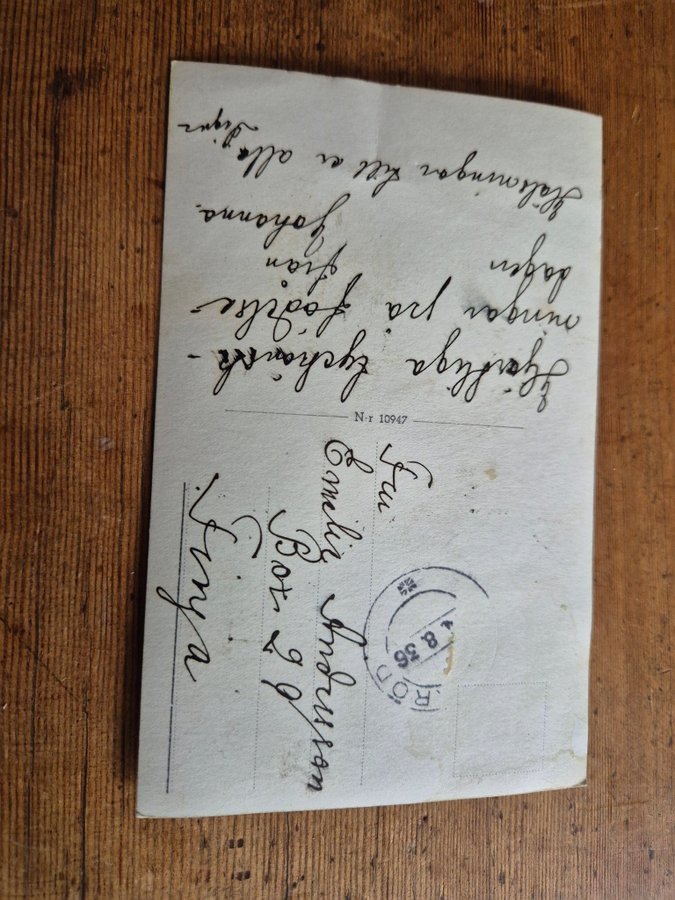 Hjärtliga lyckönsk-
ningar på födelse-
dagen från
Johanna.
Hälsningar till er alla
N:r 10947
Fru
Emilia Andersson
Box 29
RÖD
8.36